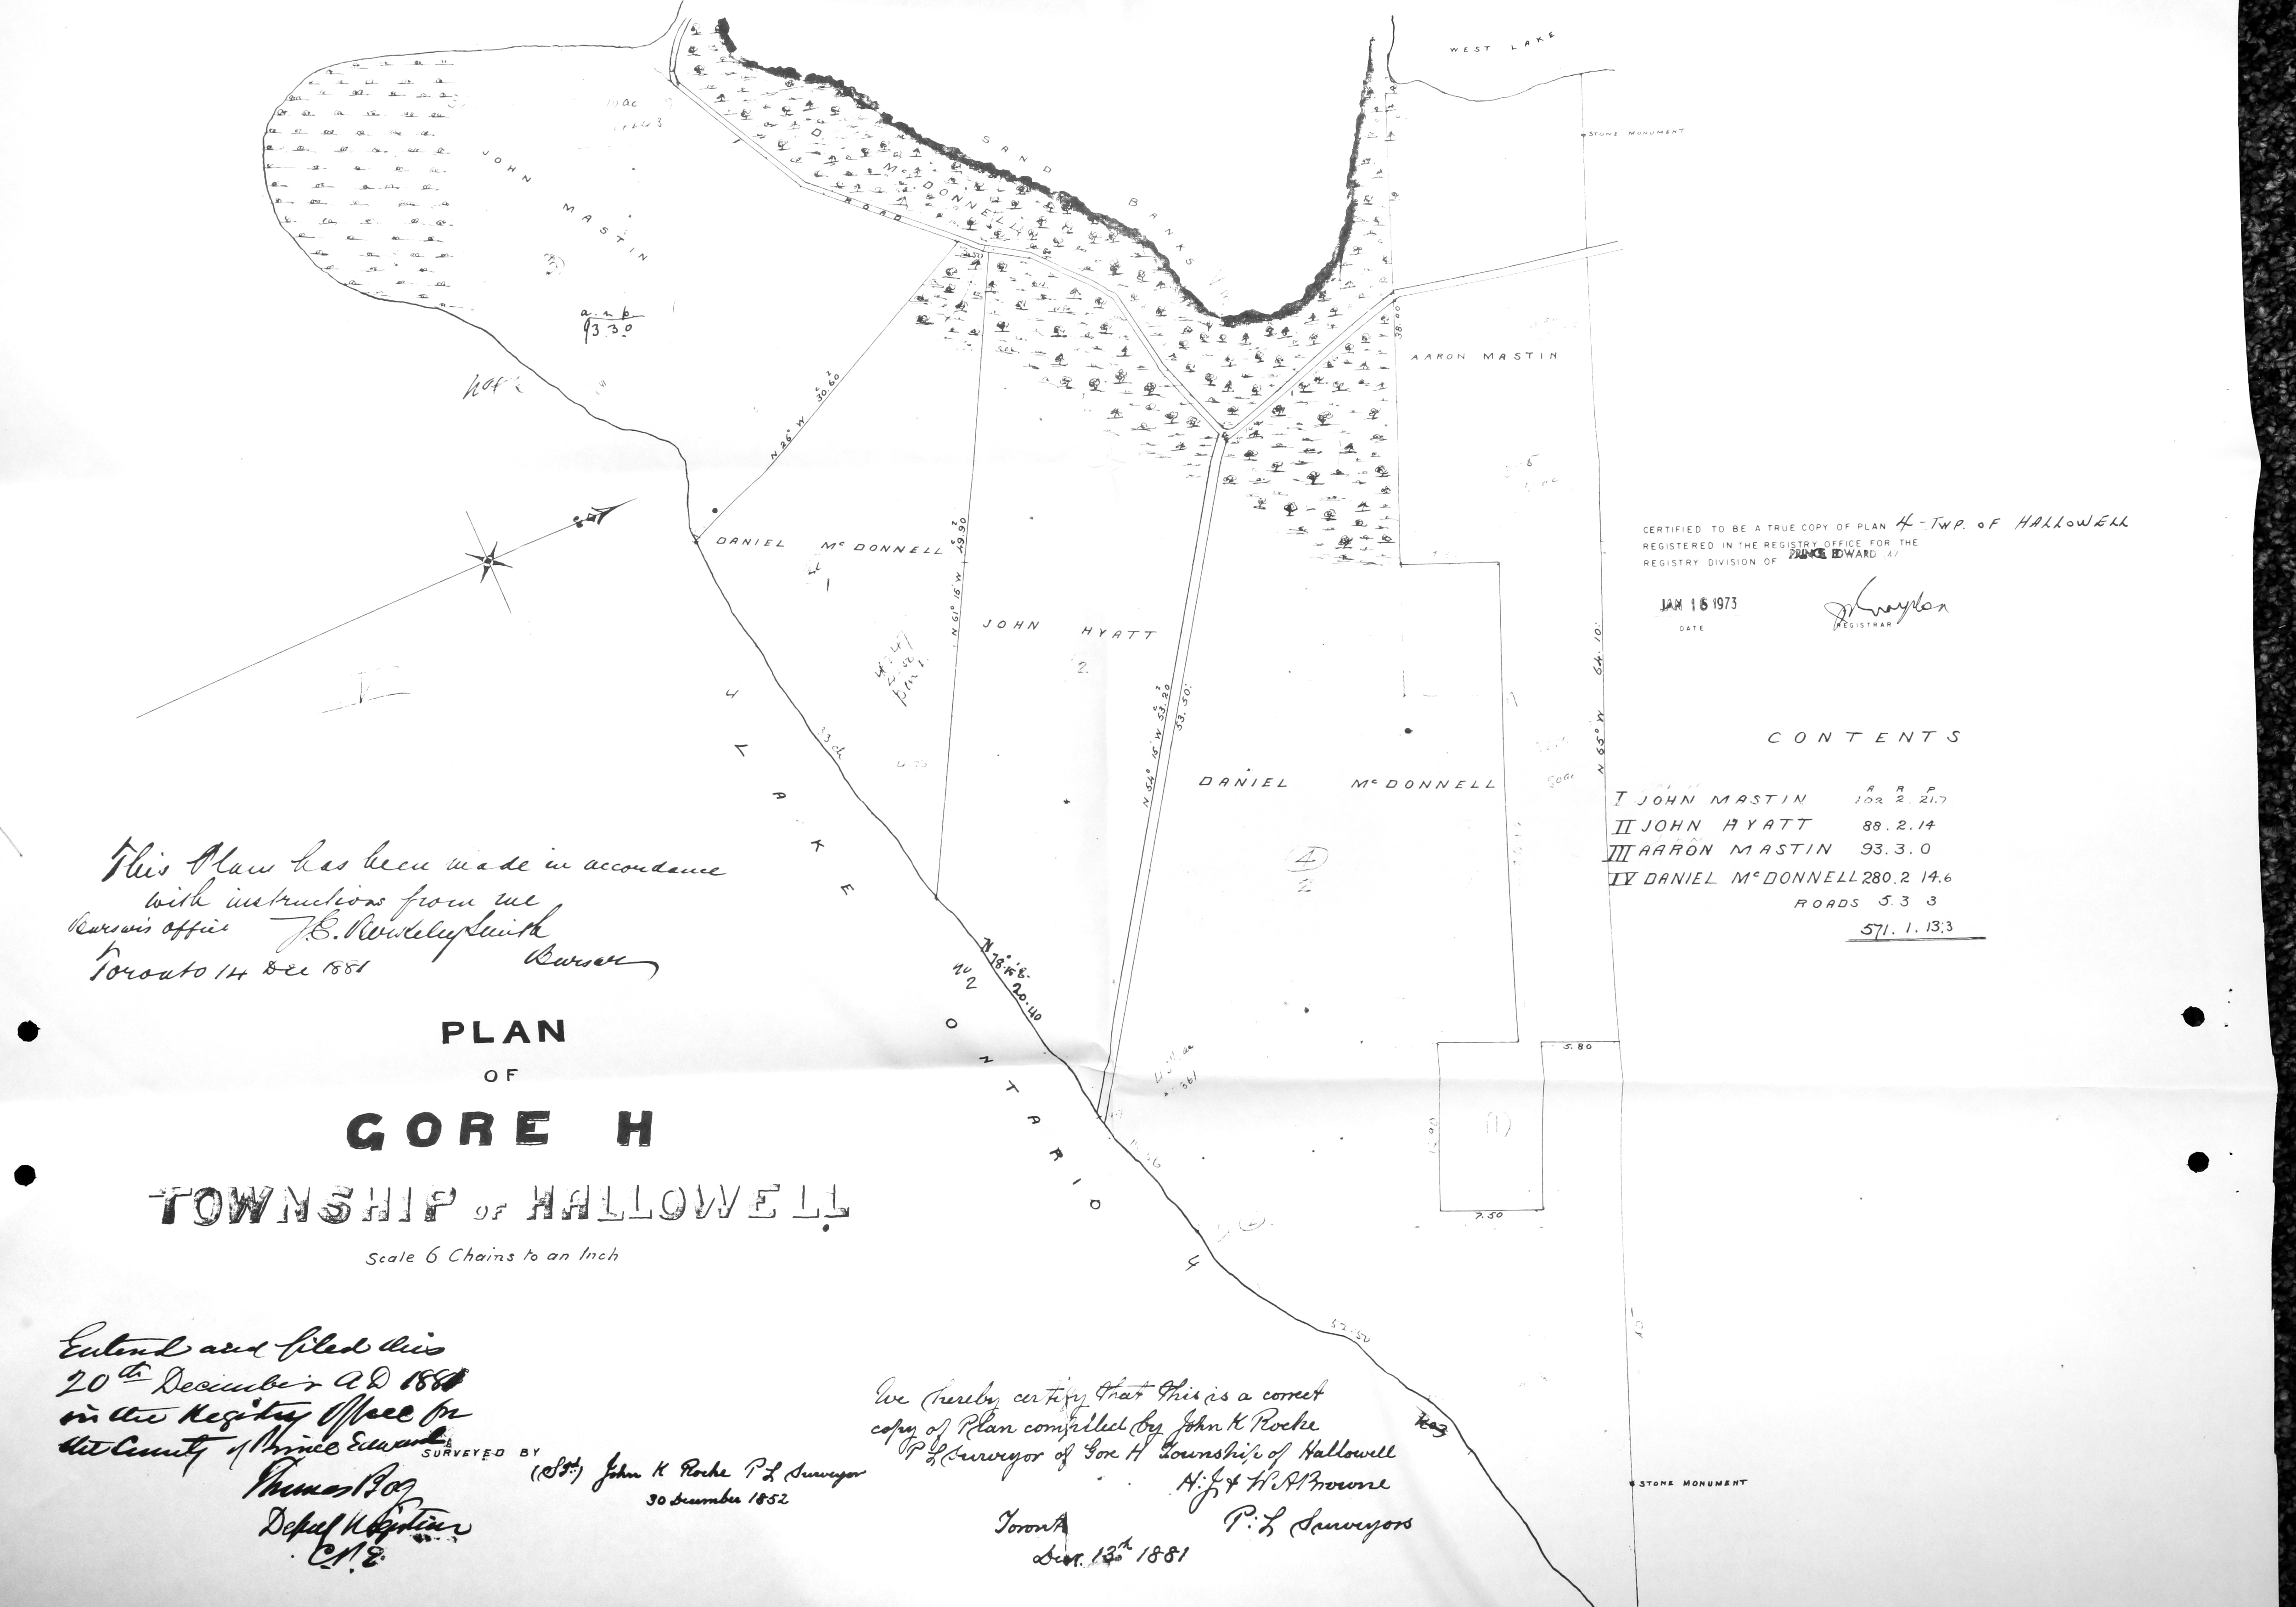 WEST LAKE
STONE MONUMENT
SAND BANKS
D. McDONNELL
ROAD
JOHN MASTIN
a. r. p
93.30
N 26° W 30.60
AARON MASTIN
38.00
DANIEL McDONNELL
1
N 61° 15' W 49.90
JOHN HYATT
2
N 54° 15' W 53.20
53.50
N 55° W 64.10
DANIEL McDONNELL
4
2
LAKE ONTARIO
33 ch
N 78° 15' E
20.40
No 2
5.80
(1)
7.50
52.50
No 3
STONE MONUMENT
CERTIFIED TO BE A TRUE COPY OF PLAN 4 - TWP. OF HALLOWELL
REGISTERED IN THE REGISTRY OFFICE FOR THE
REGISTRY DIVISION OF PRINCE EDWARD
JAN 16 1973
DATE
REGISTRAR
CONTENTS
A R P
I JOHN MASTIN 102 2. 21.7
II JOHN HYATT 88.2.14
III AARON MASTIN 93.3.0
IV DANIEL McDONNELL 280.2 14.6
ROADS 5.3 3
571.1.13.3
This Plan has been made in accordance
with instructions from me
Bursar's Office J.E. Berkeley Smith
Toronto 14 Dec 1881 Bursar
PLAN
OF
GORE H
TOWNSHIP OF HALLOWELL
Scale 6 Chains to an Inch
Entered and filed this
20th December A D 1881
in the Registry Office for
the County of Prince Edward
Thomas Bog
Deputy Registrar
C.P.E.
SURVEYED BY
(Sgd) John K Roche P L Surveyor
30 December 1852
We hereby certify that this is a correct
copy of Plan compiled by John K Roche
P L Surveyor of Gore H Township of Hallowell
H. J & W. A Browne
P. L Surveyors
Toronto
Decr. 13th 1881